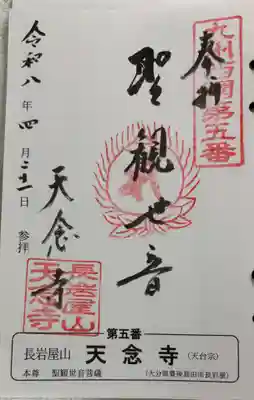 九州西国第五番
奉拝
聖観世音
天念寺
令和八年四月二十一日参拝
長岩屋山
天念寺
第五番
長岩屋山 天念寺 (天台宗)
本尊 聖観世音菩薩 (大分県豊後高田市長岩屋)